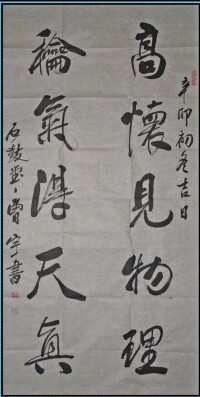 辛卯初冬吉日
高懷見物理
龢氣得天真
石鼓宇書